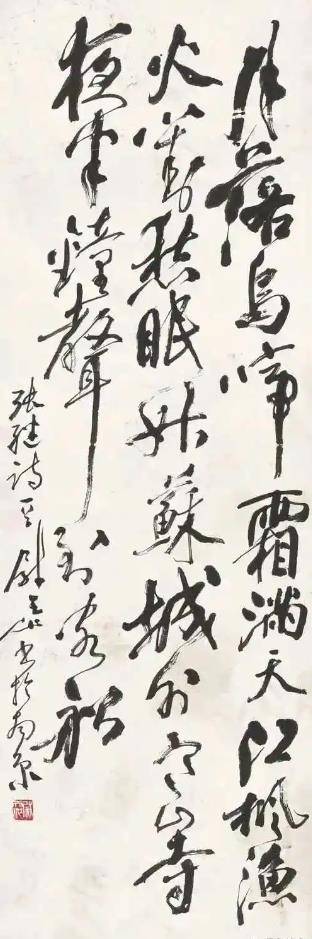 月落烏啼霜滿天江楓漁
火對愁眠姑蘇城外寒山寺
夜半鐘聲到客船
張繼詩 尉天池書於南京